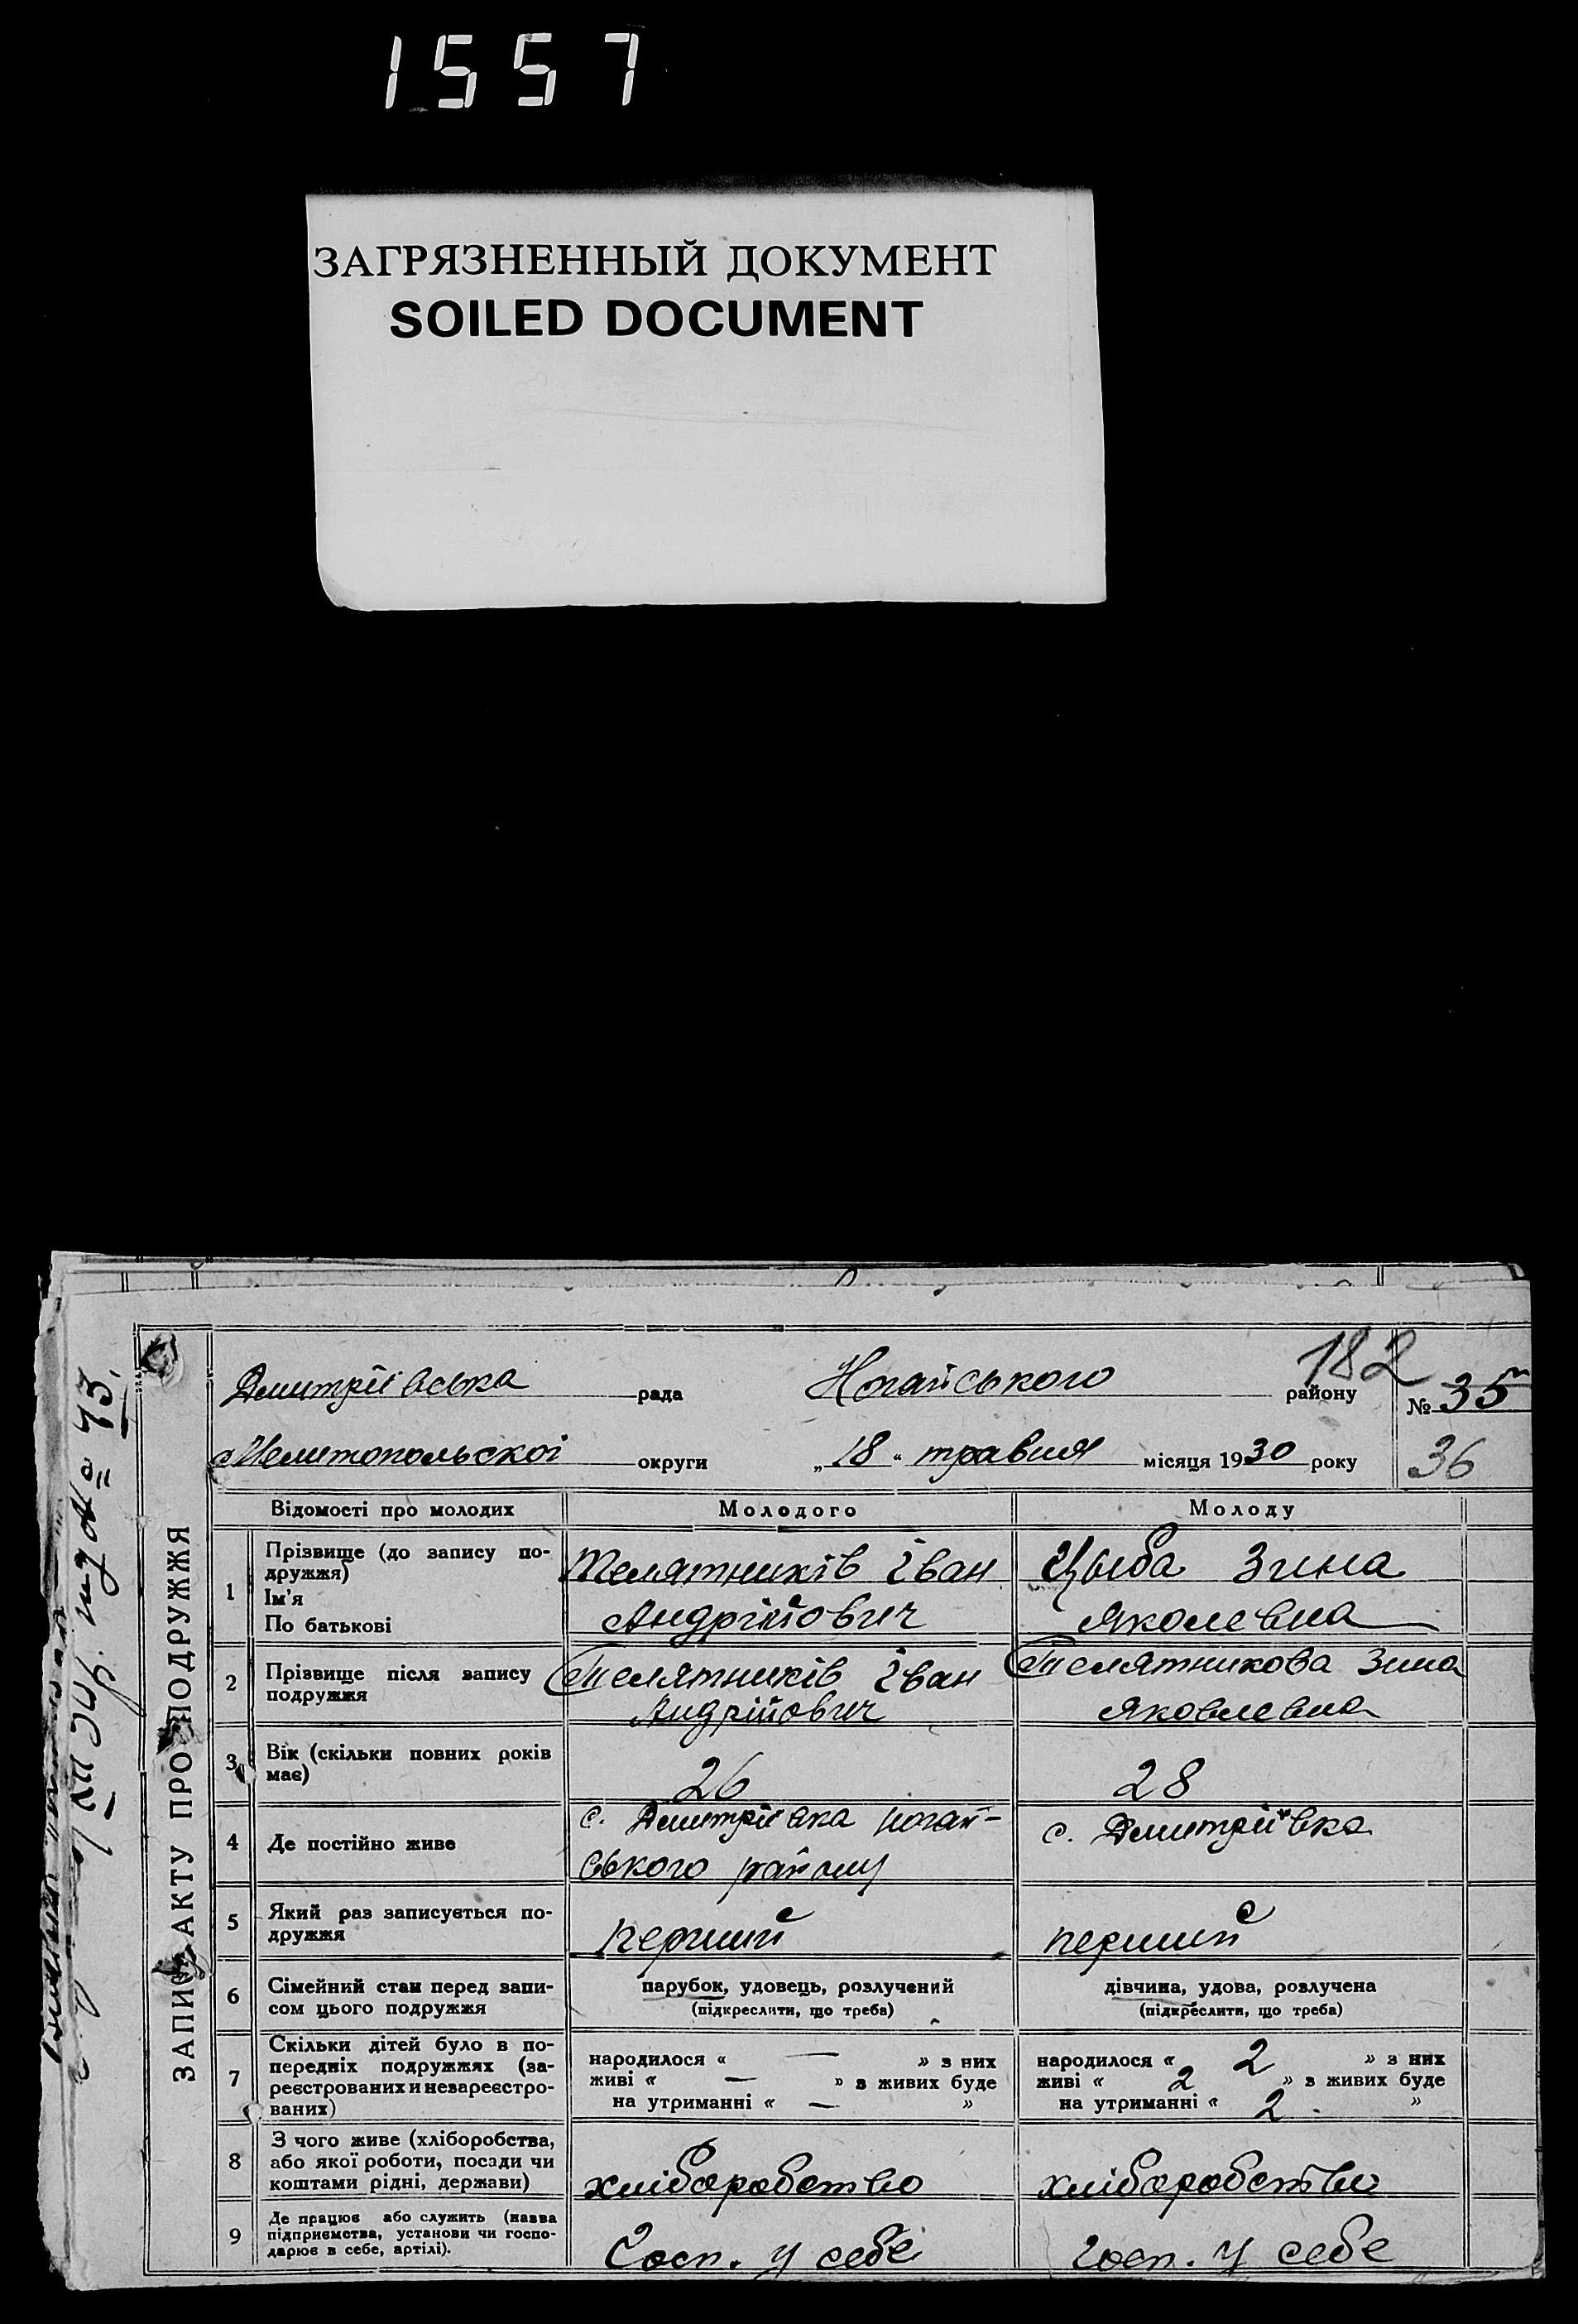 1557
ЗАГРЯЗНЕННЫЙ ДОКУМЕНТ
SOILED DOCUMENT
182
Дмитріївська рада Ногайського району № 35
Мелитопольскої округи „18“ травня місяця 1930 року 36
ЗАПИС АКТУ ПРО ПОДРУЖЖЯ
Відомості про молодих Молодого Молоду
1 Прізвище (до запису по-
дружжя)
Ім'я
По батькові
Телятників Іван
Андрійович
Цыба Зина
Яколевна
2 Прізвище після запису
подружжя
Телятників Іван
Андрійович
Телятникова Зина
Яковлевна
3 Вік (скільки повних років
має)
26
28
4 Де постійно живе
с. Дмитріївка ногай-
ського району
с. Дмитріївка
5 Який раз записується по-
дружжя
перший
перший
6 Сімейний стан перед запи-
сом цього подружжя
парубок, удовець, розлучений
(підкреслити, що треба)
дівчина, удова, розлучена
(підкреслити, що треба)
7 Скільки дітей було в по-
передніх подружжях (за-
реєстрованих и незареєстро-
ваних)
народилося « — » з них
живі « — » з живих буде
на утриманні « — »
народилося « 2 » з них
живі « 2 » з живих буде
на утриманні « 2 . »
8 З чого живе (хліборобства,
або якої роботи, посади чи
коштами рідні, держави)
хліборобство
хліборобство
9 Де працює або служить (назва
підприємства, установи чи госпо-
дарює в себе, артілі).
Госп. у себе
Госп. у себе